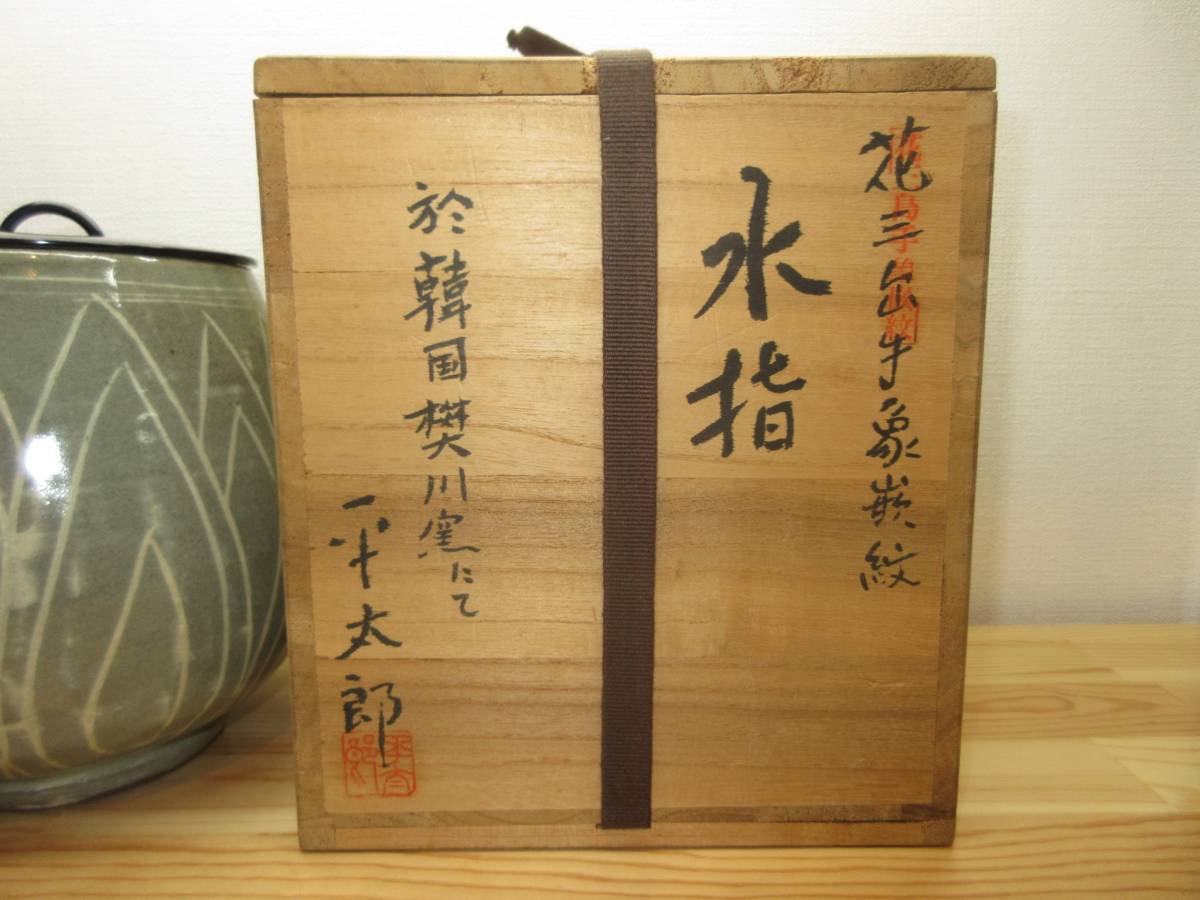 花三島手象嵌紋
水指
於韓国樊川窯にて
平太郎
平太郎